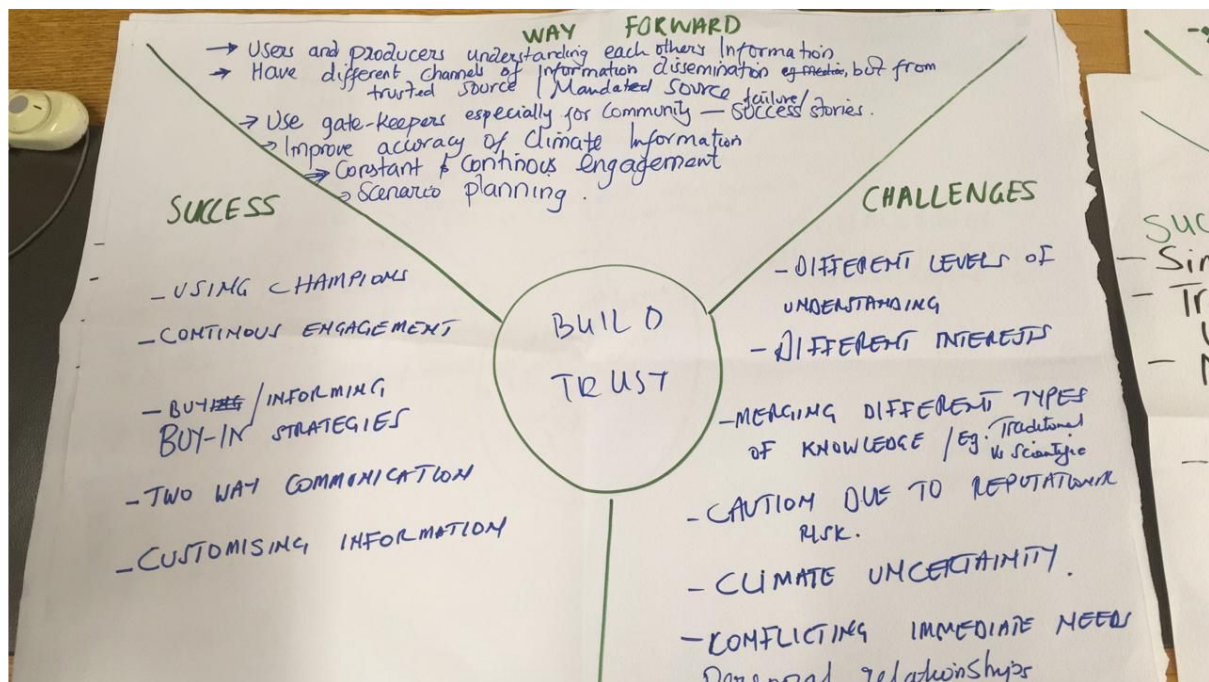 WAY FORWARD
→ Users and producers understanding each others Information
→ Have different channels of Information dissemination eg media, but from
trusted source / Mandated source
failure/
→ Use gate-keepers especially for Community — success stories.
→ Improve accuracy of Climate Information
→ Constant & continous engagement
→ Scenario planning.
SUCCESS
- USING CHAMPIONS
- CONTINOUS ENGAGEMENT
- BUYING / INFORMING
BUY-IN STRATEGIES
- TWO WAY COMMUNICATION
- CUSTOMISING INFORMATION
BUILD
TRUST
CHALLENGES
- DIFFERENT LEVELS OF
UNDERSTANDING
- DIFFERENT INTERESTS
- MERGING DIFFERENT TYPES
OF KNOWLEDGE / Eg. Traditional
Vs Scientific
- CAUTION DUE TO
RISK.
- CLIMATE UNCERTAINITY.
- CONFLICTING IMMEDIATE NEEDS
Personal relationships
SUC
- Sin
- Tr